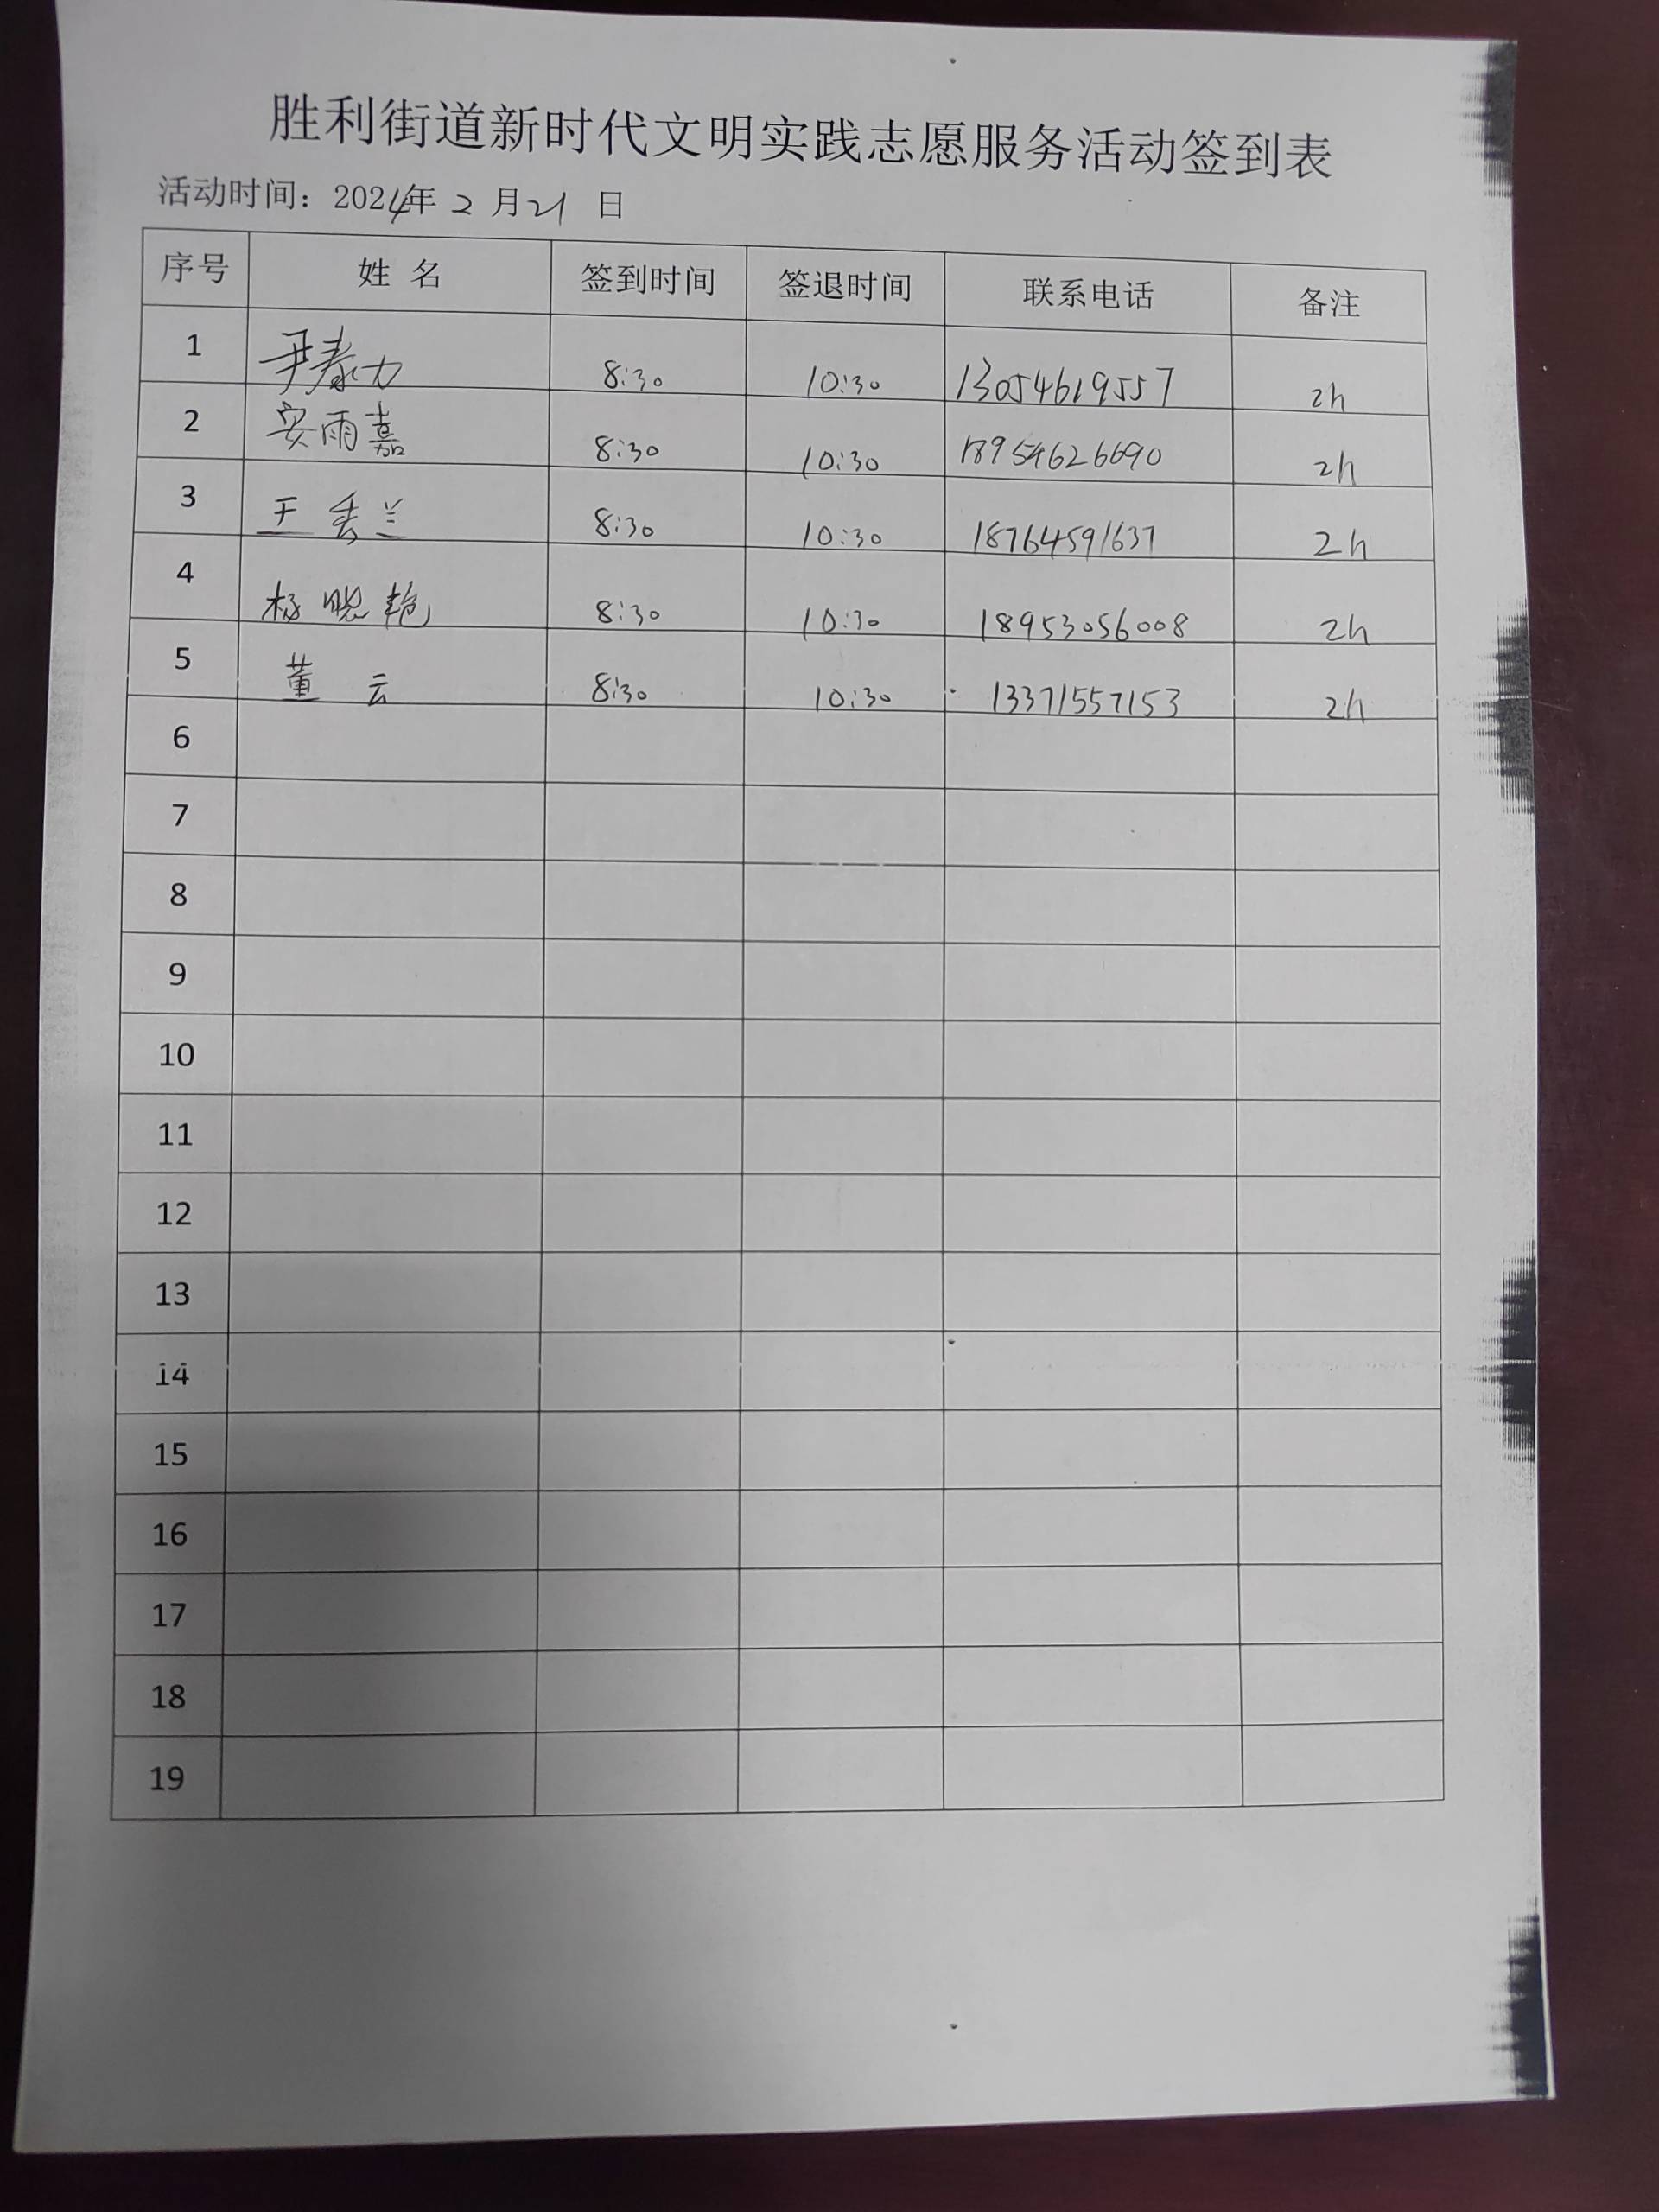 胜利街道新时代文明实践志愿服务活动签到表
活动时间：2024年 2 月 21 日
序号 姓 名 签到时间 签退时间 联系电话 备注
1 尹春力 8:30 10:30 13054619557 2h
2 安雨嘉 8:30 10:30 18954626690 2h
3 王秀兰 8:30 10:30 18764591637 2h
4 杨晓艳 8:30 10:30 18953056008 2h
5 董云 8:30 10:30 13371557153 2h
6
7
8
9
10
11
12
13
14
15
16
17
18
19